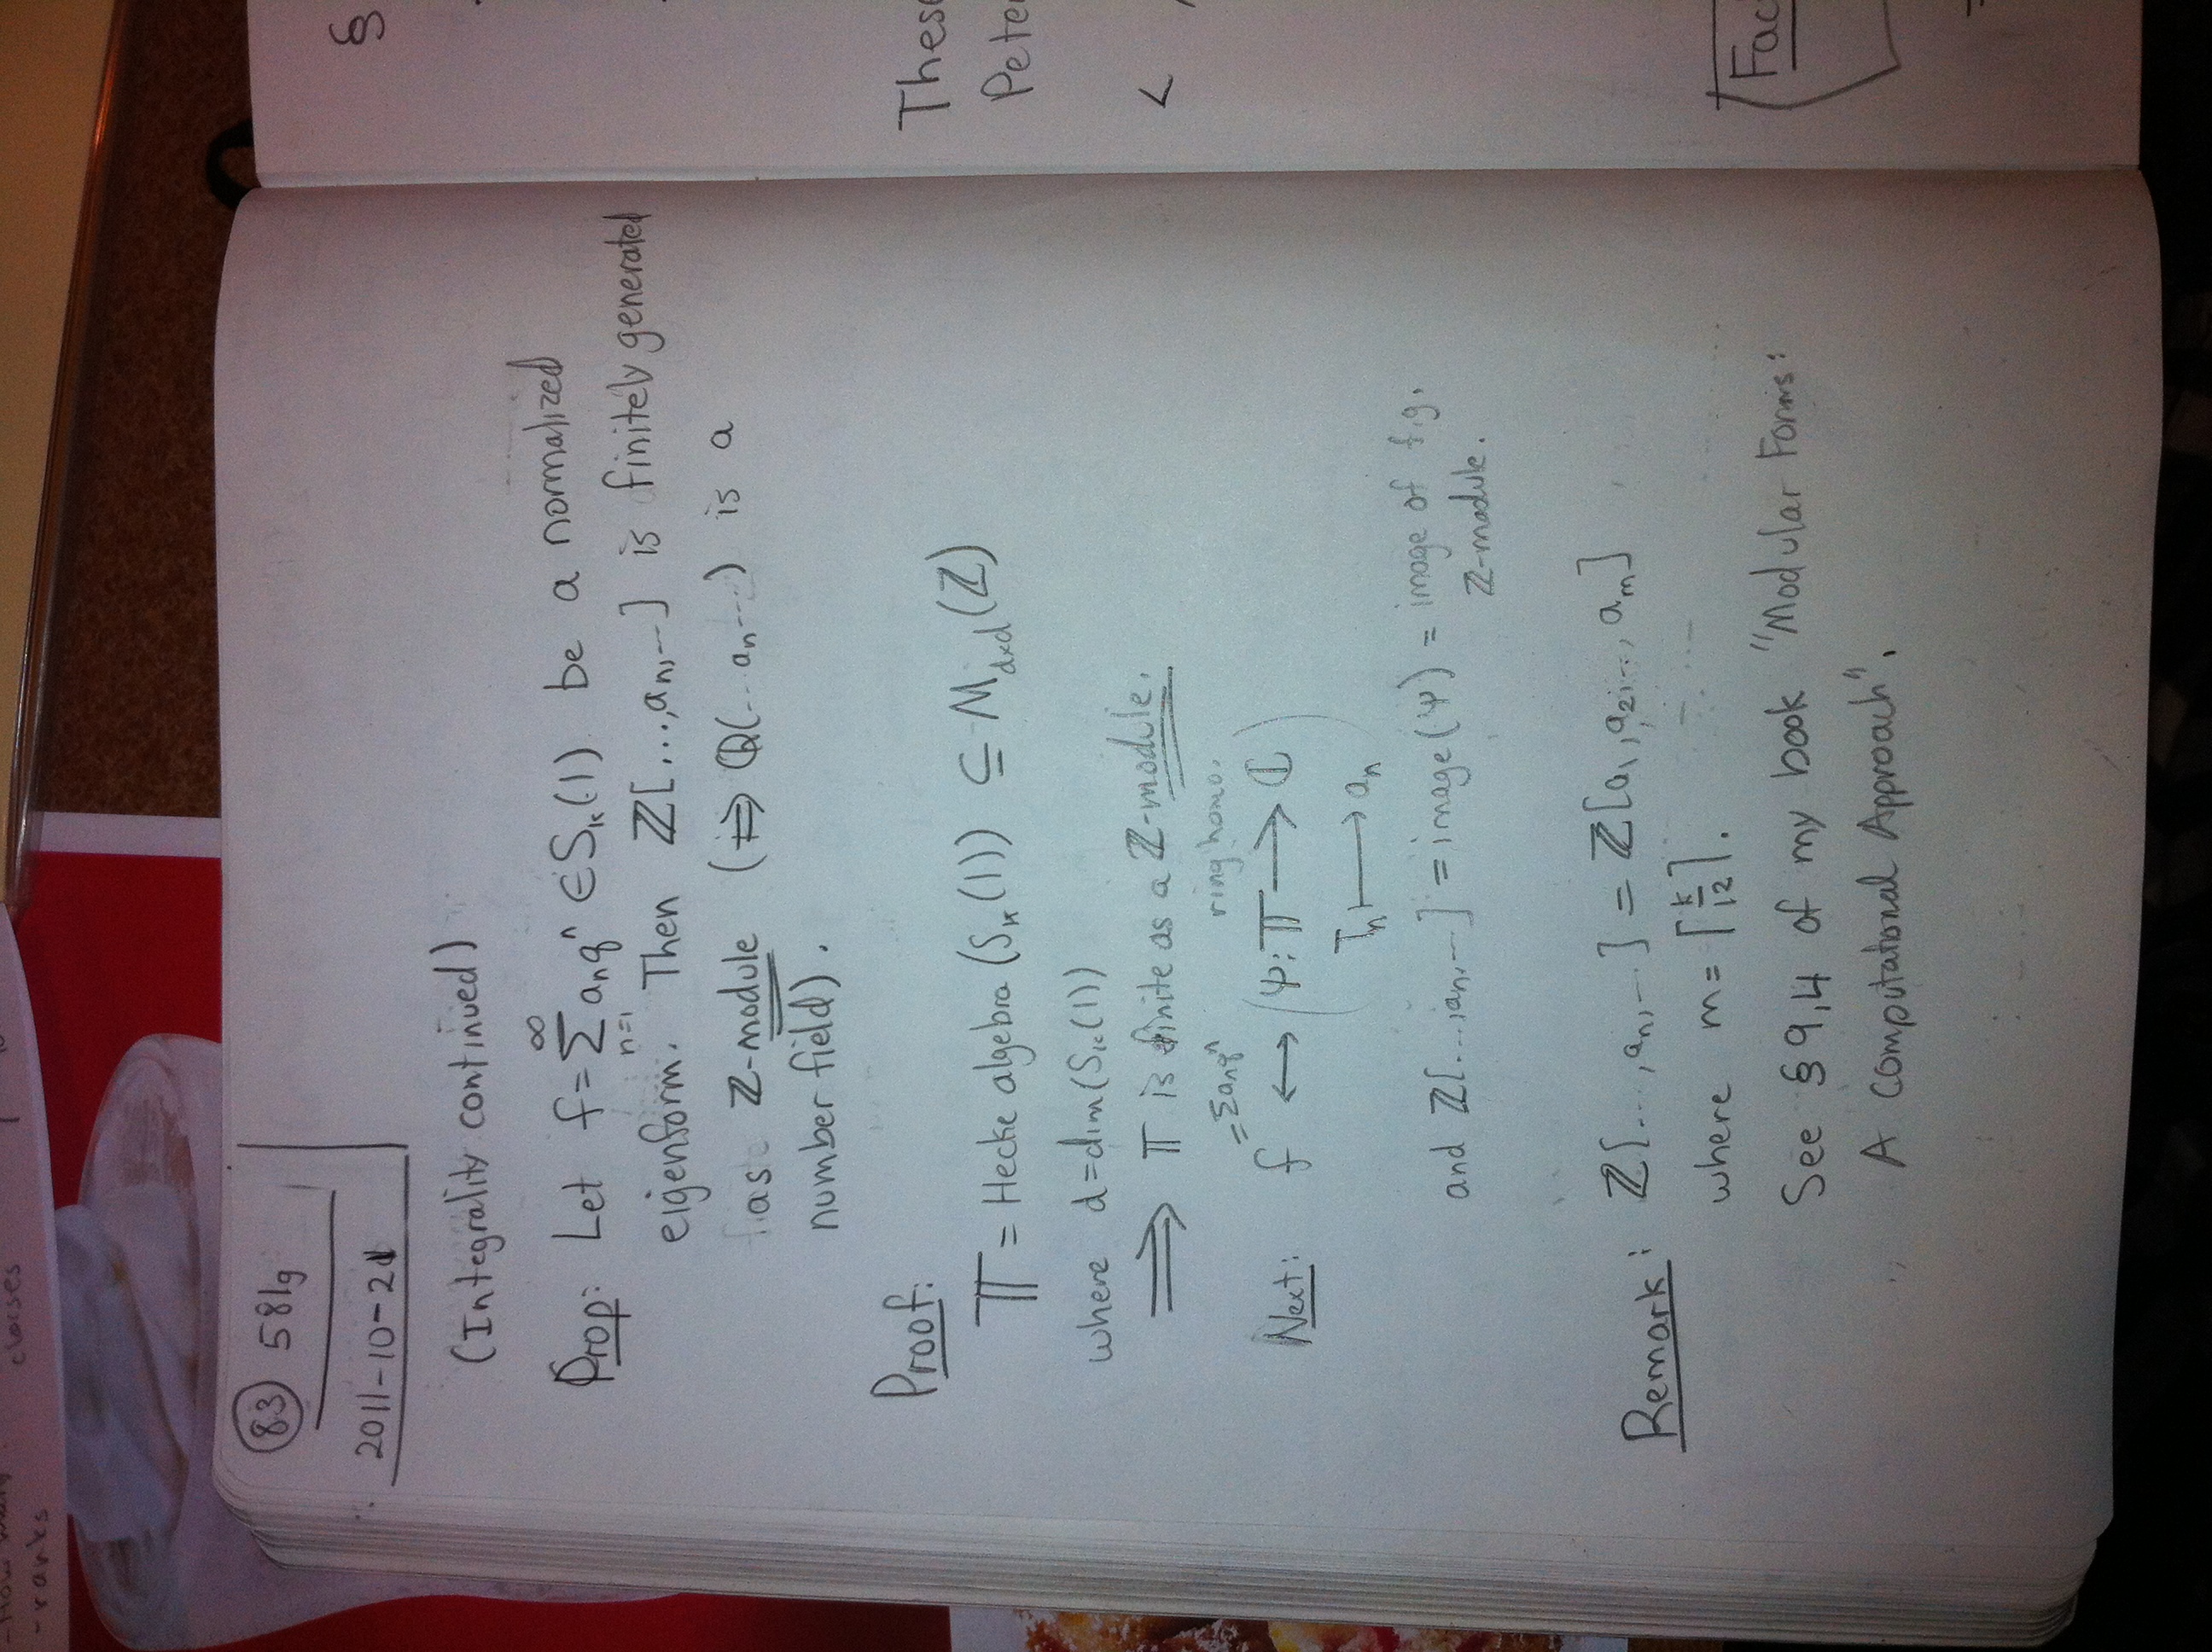 83 581g
2011-10-21
(Integrality continued)
Prop: Let f = ∑_{n=1}^{∞} a_n q^n ∈ S_k(1) be a normalized
eigenform. Then ℤ[...,a_n,...] is finitely generated
as a ℤ-module (⇒ ℚ(...a_n...) is a
number field).
Proof:
𝕋 = Hecke algebra (S_k(1)) ⊆ M_{d×d}(ℤ)
where d = dim(S_k(1))
⟹ 𝕋 is finite as a ℤ-module.
Next: f = ∑a_n q^n ⟷ (ψ: 𝕋 ⟶ ℂ) ring homo.
T_n ⟼ a_n
and ℤ[...,a_n,...] = image(ψ) = image of f.g.
ℤ-module.
Remark: ℤ[...,a_n,...] = ℤ[a_1,a_2,...,a_m]
where m = ⌈k/12⌉.
See §9.4 of my book "Modular Forms:
A Computational Approach".
§
These
Peter
<
Fac
closes
- ranks